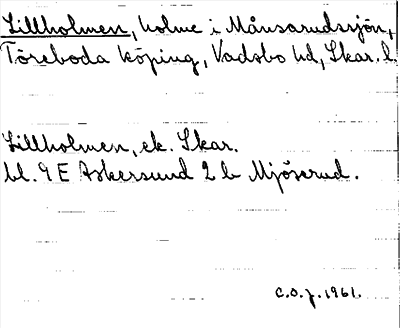 Lillholmen, holme i Månsarudssjön,
Töreboda köping, Vadsbo hd, Skar. l.
Lillholmen, ek. Skar.
bl. 9 E Askersund 2 b Mjöserud.
C.O.J. 1961.